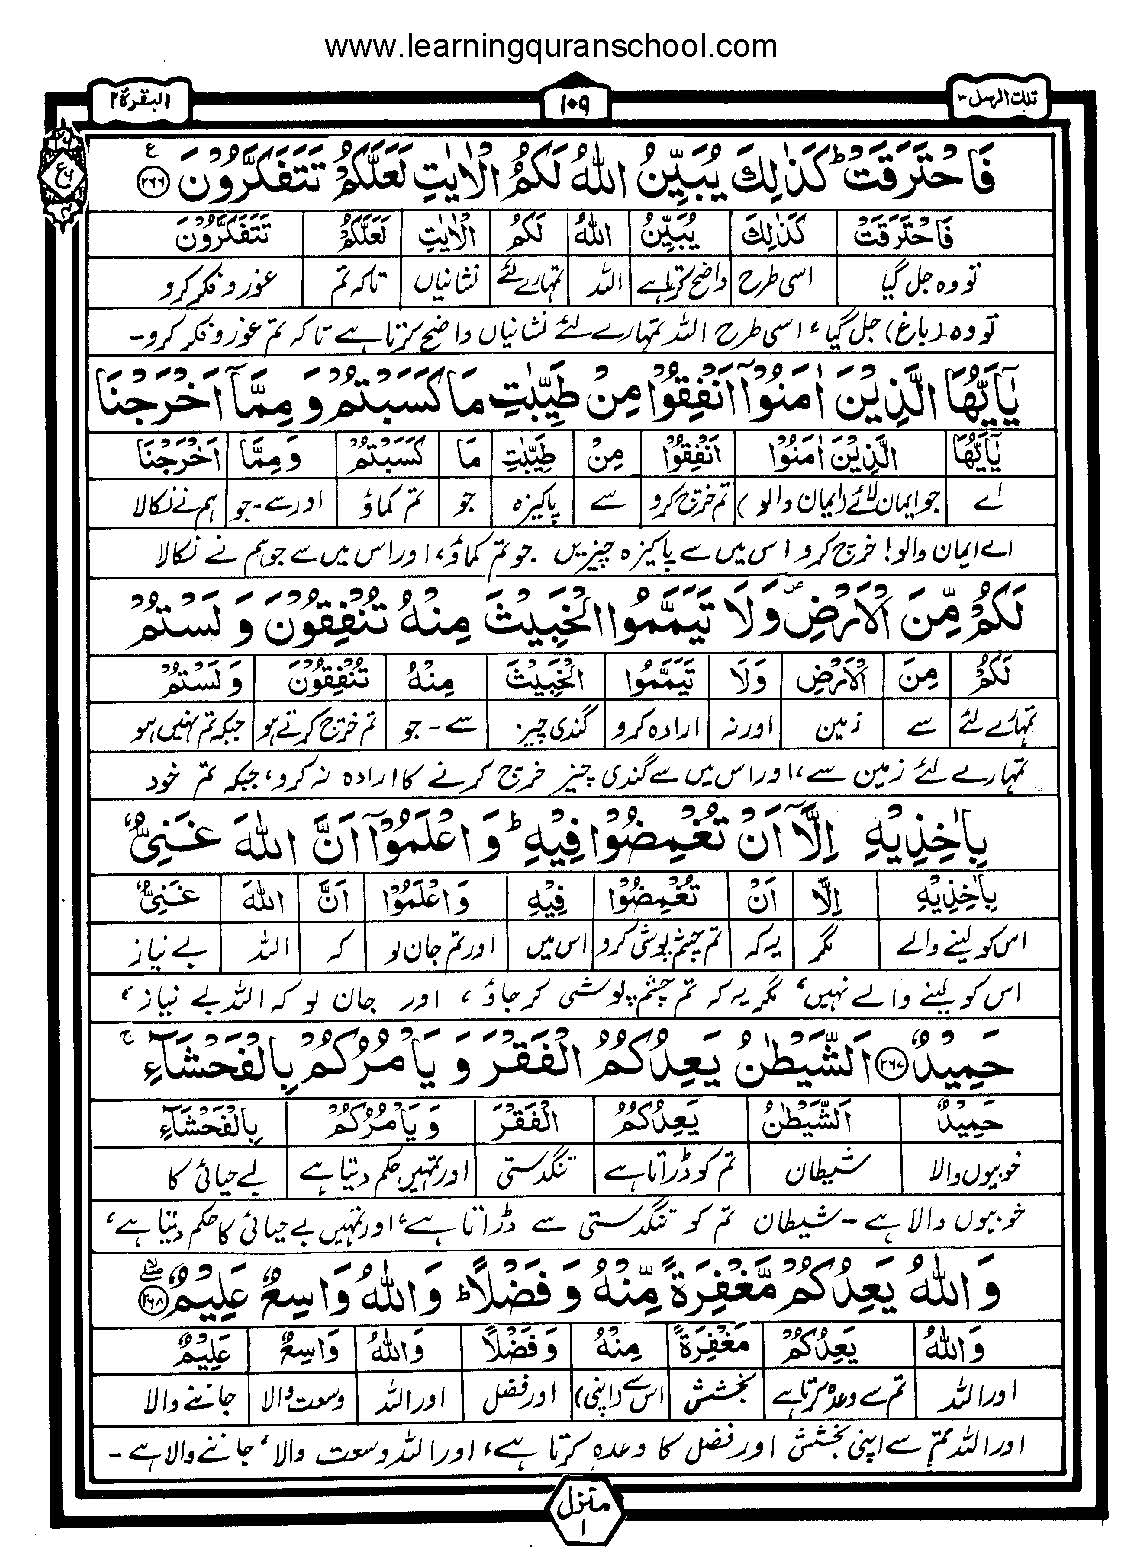 www.learningquranschool.com
تلك الرسل ٣ ١٠٩ البقرة ٢
فَاحْتَرَقَتْ ؕ كَذٰلِكَ يُبَيِّنُ اللّٰهُ لَكُمُ الْاٰيٰتِ لَعَلَّكُمْ تَتَفَكَّرُوْنَ ﴿۲۶۶﴾ ع
فَاحْتَرَقَتْ كَذٰلِكَ يُبَيِّنُ اللّٰهُ لَكُمُ الْاٰيٰتِ لَعَلَّكُمْ تَتَفَكَّرُوْنَ
تو وہ جل گیا اسی طرح واضح کرتا ہے اللہ تمہارے لئے نشانیاں تاکہ تم غور و فکر کرو
تو وہ (باغ) جل گیا، اسی طرح اللہ تمہارے لئے نشانیاں واضح کرتا ہے تاکہ تم غور و فکر کرو۔
يٰۤاَيُّهَا الَّذِيْنَ اٰمَنُوْۤا اَنْفِقُوْا مِنْ طَيِّبٰتِ مَا كَسَبْتُمْ وَ مِمَّاۤ اَخْرَجْنَا
يٰۤاَيُّهَا الَّذِيْنَ اٰمَنُوْۤا اَنْفِقُوْا مِنْ طَيِّبٰتِ مَا كَسَبْتُمْ وَ مِمَّاۤ اَخْرَجْنَا
اے جو ایمان لائے (ایمان والو) تم خرچ کرو سے پاکیزہ جو تم کماؤ اور سے۔جو ہم نے نکالا
اے ایمان والو! خرچ کرو اس میں سے پاکیزہ چیزیں جو تم کماؤ، اور اس میں سے جو ہم نے نکالا
لَكُمْ مِّنَ الْاَرْضِ ۪ وَلَا تَيَمَّمُوا الْخَبِيْثَ مِنْهُ تُنْفِقُوْنَ وَ لَسْتُمْ
لَكُمْ مِنَ الْاَرْضِ وَلَا تَيَمَّمُوا الْخَبِيْثَ مِنْهُ تُنْفِقُوْنَ وَ لَسْتُمْ
تمہارے لئے سے زمین اور نہ ارادہ کرو گندی چیز سے۔جو تم خرچ کرتے ہو جبکہ تم نہیں ہو
تمہارے لئے زمین سے، اور اس میں سے گندی چیز خرچ کرنے کا ارادہ نہ کرو، جبکہ تم خود
بِاٰخِذِيْهِ اِلَّاۤ اَنْ تُغْمِضُوْا فِيْهِ ؕ وَ اعْلَمُوْۤا اَنَّ اللّٰهَ غَنِيٌّ
بِاٰخِذِيْهِ اِلَّا اَنْ تُغْمِضُوْا فِيْهِ وَ اعْلَمُوْا اَنَّ اللّٰهَ غَنِيٌّ
اس کو لینے والے مگر یہ کہ تم چشم پوشی کرو اس میں اور تم جان لو کہ اللہ بے نیاز
اس کو لینے والے نہیں، مگر یہ کہ تم چشم پوشی کر جاؤ، اور جان لو کہ اللہ بے نیاز،
حَمِيْدٌ ﴿۲۶۷﴾ اَلشَّيْطٰنُ يَعِدُكُمُ الْفَقْرَ وَ يَاْمُرُكُمْ بِالْفَحْشَآءِ ۚ
حَمِيْدٌ اَلشَّيْطٰنُ يَعِدُكُمُ الْفَقْرَ وَ يَاْمُرُكُمْ بِالْفَحْشَآءِ
خوبیوں والا شیطان تم کو ڈراتا ہے تنگدستی اور تمہیں حکم دیتا ہے بے حیائی کا
خوبیوں والا ہے۔ شیطان تم کو تنگدستی سے ڈراتا ہے، اور تمہیں بے حیائی کا حکم دیتا ہے،
وَ اللّٰهُ يَعِدُكُمْ مَّغْفِرَةً مِّنْهُ وَ فَضْلًا ؕ وَ اللّٰهُ وَاسِعٌ عَلِيْمٌ ﴿۲۶۸﴾ ۖۙ
وَ اللّٰهُ يَعِدُكُمْ مَغْفِرَةً مِنْهُ وَ فَضْلًا وَ اللّٰهُ وَاسِعٌ عَلِيْمٌ
اور اللہ تم سے وعدہ کرتا ہے بخشش اس سے (اپنی) اور فضل اور اللہ وسعت والا جاننے والا
اور اللہ تم سے اپنی بخشش اور فضل کا وعدہ کرتا ہے، اور اللہ وسعت والا، جاننے والا ہے۔
منزل ١